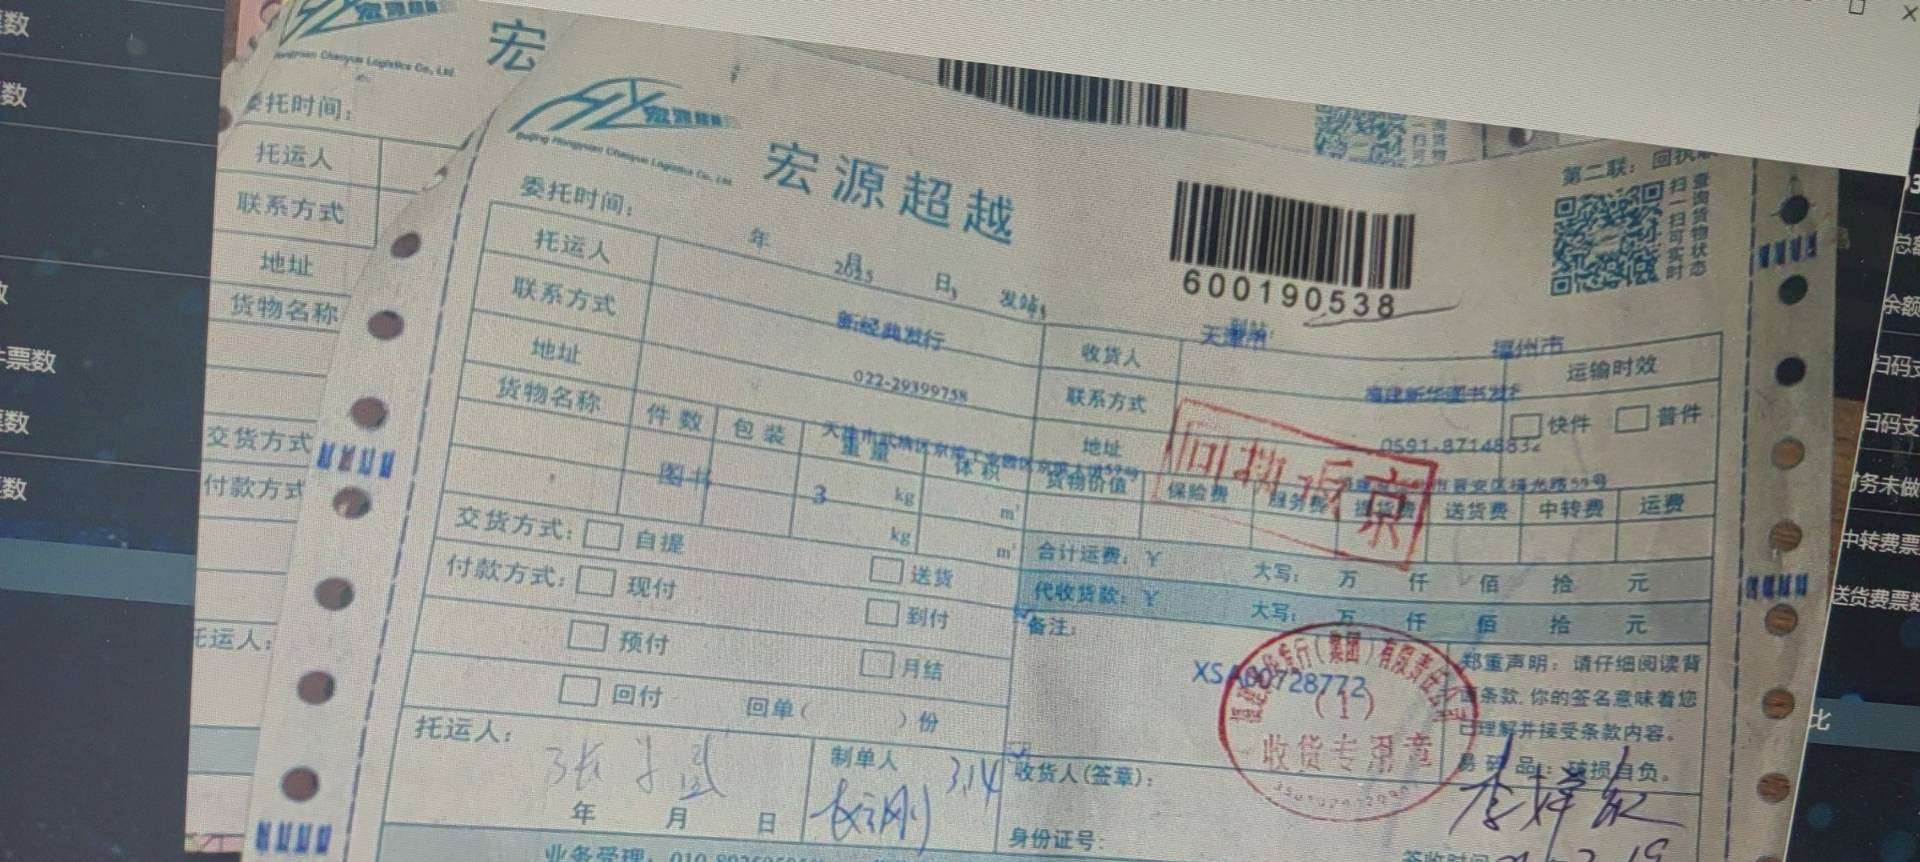 宏
Hongyuan Chaoyue Logistics Co., Ltd.
委托时间：
托运人
联系方式
地址
货物名称
交货方式
付款方式
托运人：
宏源超越
Beijing Hongyuan Chaoyue Logistics Co., Ltd.
600190538
第二联：回执
扫一扫可实时
查询货物状态
委托时间： 年 月 日， 发站：
2025
天津市
福州市
托运人 新经典发行 收货人 福建新华图书发 运输时效
联系方式 022-29399758 联系方式 0591-87148832 快件 普件
地址 地址
货物名称 件数 包装 重量 体积 货物价值 保险费 服务费 提货费 送货费 中转费 运费
图书 3 kg m³
kg m³
回执 京
交货方式： 自提 送货 合计运费：￥ 大写： 万 仟 佰 拾 元
付款方式： 现付 到付 代收货款：￥ 大写： 万 仟 佰 拾 元
预付 月结 备注：
回付 回单（ ）份
XSA00728772
郑重声明：请仔细阅读背
面条款，你的签名意味着您
已理解并接受条款内容。
易碎品：破损自负。
发行（集团）有限责任公司
（1）
收货专用章
托运人： 制单人 314 收货人(签章)：
年 月 日 身份证号：
业务受理：010
签收时间
票数
件票数
扫码支
财务未做
中转费票
送货费票数
比